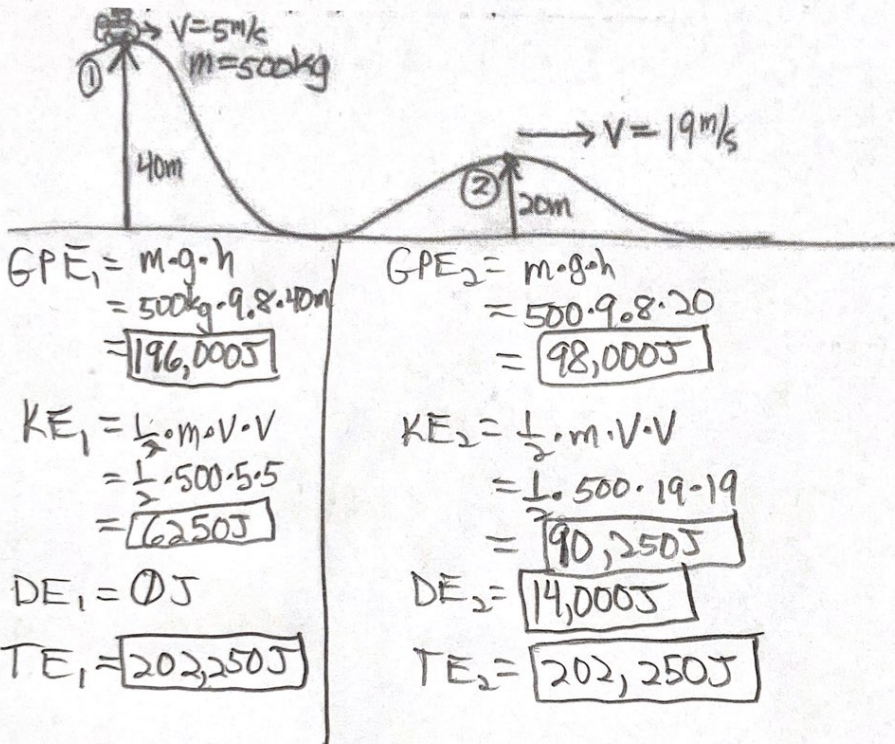 V=5m/s
m=500kg
①
40m
→ V= 19m/s
②
20m
GPE₁= m·g·h
= 500kg·9.8·40m
= 196,000J
KE₁ = ½·m·V·V
= ½·500·5·5
= 6250J
DE₁ = 0J
TE₁ = 202,250J
GPE₂= m·g·h
= 500·9.8·20
= 98,000J
KE₂= ½·m·V·V
= ½·500·19·19
= 90,250J
DE₂= 14,000J
TE₂= 202,250J